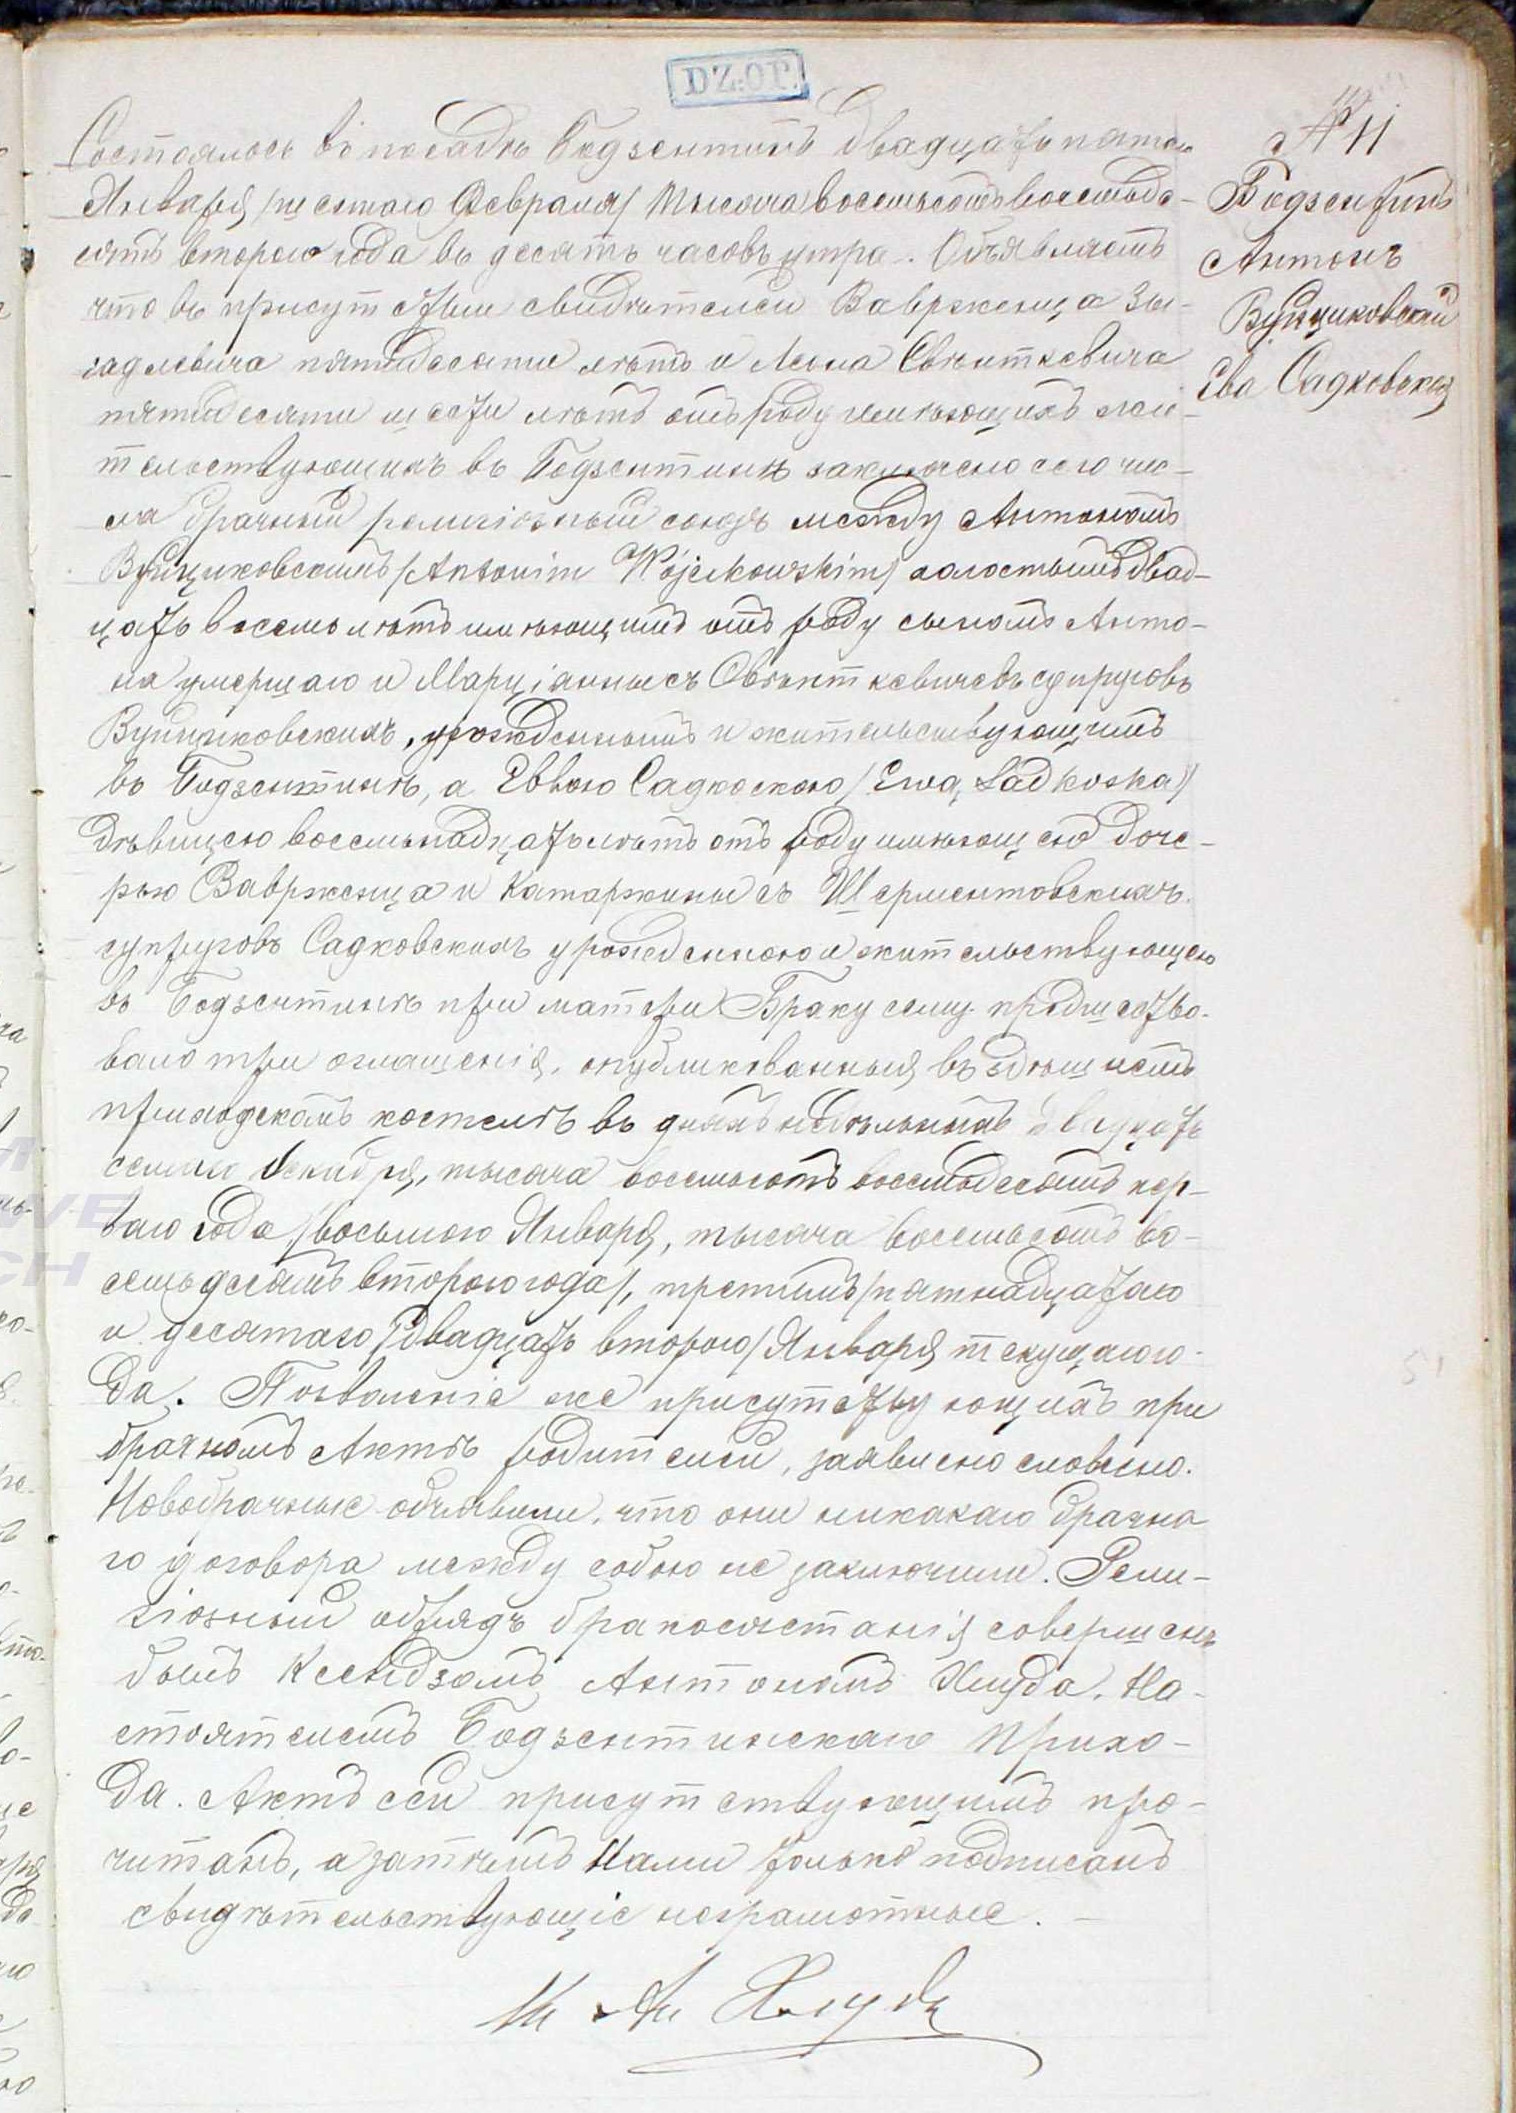 DZ.OP.
№ 11
Бодзентинъ
Антонъ
Вуйциковскій
Ева Садковская
Состоялось въ посадѣ Бодзентинѣ двадцать пятаго
Января /шестаго Февраля/ тысяча восемьсотъ восемьде-
сятъ втораго года въ десять часовъ утра. Объявляемъ
что въ присутствіи свидѣтелей Вавржеңца
пятидесяти лѣтъ и Свѣнткевича
пятидесяти шести лѣтъ отъ роду имѣющихъ жи-
тельствующихъ въ Бодзентинѣ заключено сего чис-
ла брачный религіозный союзъ между Антономъ
Вуйциковскимъ /Antonim Wójcikowskim/ холостымъ двад-
цать восемь лѣтъ имѣющимъ отъ роду сыномъ Анто-
на умершаго и Марціанны съ Свѣнткевичевъ супруговъ
Вуйциковскихъ, урожденнымъ и жительствующимъ
въ Бодзентинѣ, а Еввою Садкоскою /Ewą Sadkoską/
дѣвицею восемьнадцать лѣтъ отъ роду имѣющею доче-
рью Вавржеңца и Катаржины съ Шерментовскихъ
супруговъ Садковскихъ урожденною и жительствующею
въ Бодзентинѣ при матери. Браку сему предшество-
вало три оглашенія, опубликованныя въ здѣшнемъ
приходскомъ костелѣ въ дняхъ недѣльныхъ двадцать
седьмаго Декабря, тысяча восемьсотъ восемьдесятъ пер-
ваго года /восьмого Января, тысяча восемьсотъ во-
семьдесятъ второго года/, третьимъ /пятнадцатаго
и десятаго /двадцать второго/ Января текущаго го-
да. Позволеніе же присутствующихъ при
брачномъ Актѣ родителей, заявлено словесно.
Новобрачные объявили, что они никакаго брачна
го договора между собою не заключили. Рели-
гіозный обрядъ бракосочетанія совершенъ
былъ Ксендзомъ Антономъ Хлуда. На-
стоятелемъ Бодзентинскаго прихо-
да. Актъ сей присутствующимъ про-
читанъ, а затѣмъ Нами только подписанъ
свидѣтельствующіе неграмотные. —
Хлуда